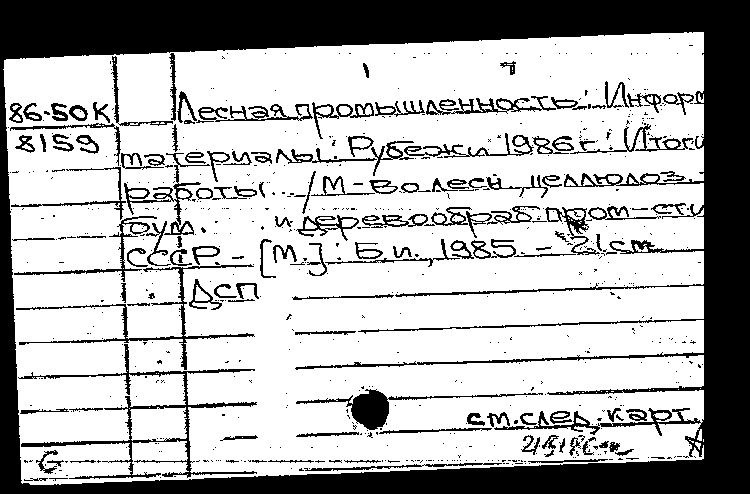 86-50К Лесная промышленность: Информ
8159
материалы: Рубежи 1986 г.: Итоги
работы... / М-во лесн., целлюлоз.-
бум. и деревообраб. пром-сти
СССР. - [М.]: Б.и., 1985. - 21 см.
ДСП
см. след. карт.